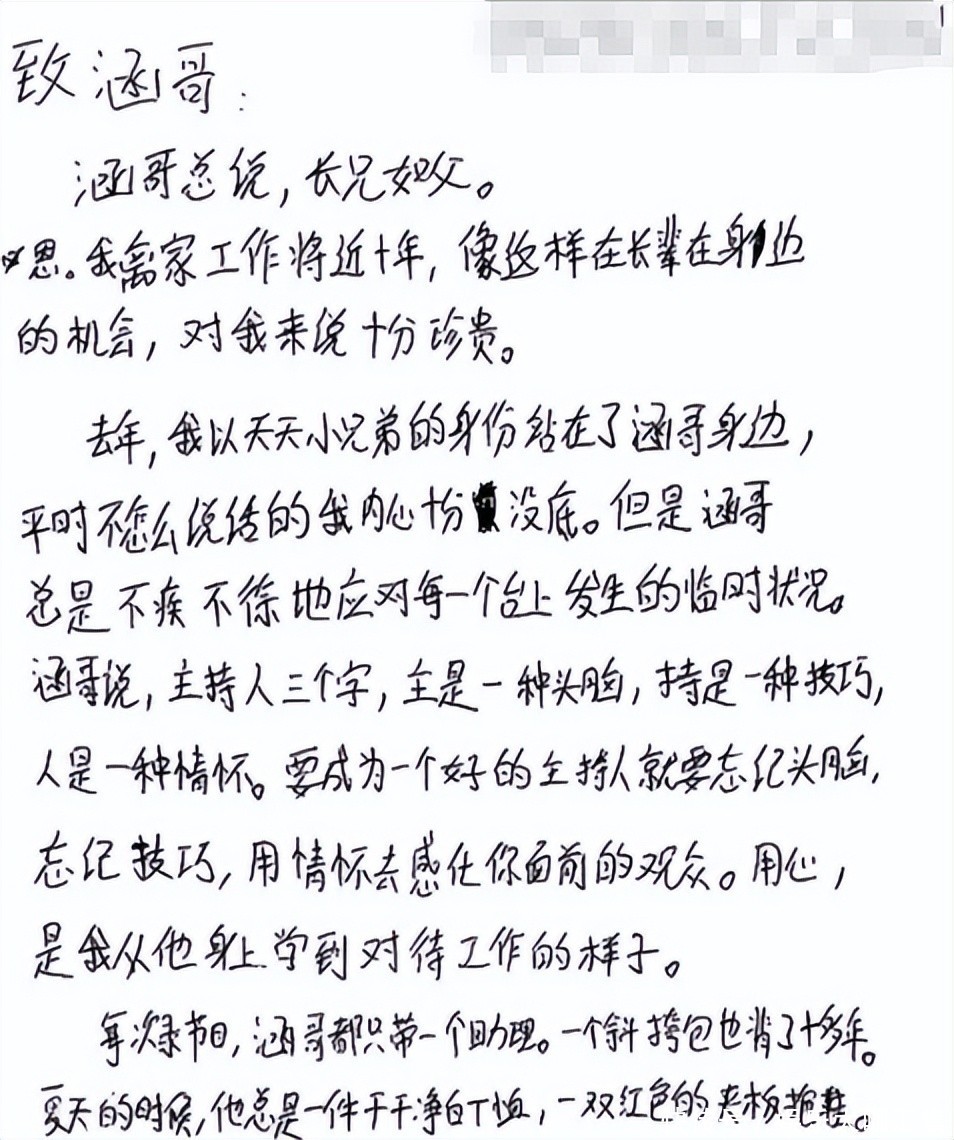 致涵哥:
涵哥总说，长兄如父。
恩。我离家工作将近十年，像这样在长辈在身边
的机会，对我来说十分珍贵。
去年，我以天天小兄弟的身份站在了涵哥身边，
平时不怎么说话的我内心十分没底。但是涵哥
总是不疾不徐地应对每一个台上发生的临时状况。
涵哥说，主持人三个字，主是一种头脑，持是一种技巧，
人是一种情怀。要成为一个好的主持人就要忘记头脑，
忘记技巧，用情怀去感化你面前的观众。用心，
是我从他身上学到对待工作的样子。
每次录节目，涵哥都只带一个助理。一个斜挎包也背了十多年。
夏天的时候，他总是一件干干净白T恤，一双红色的夹板拖鞋。